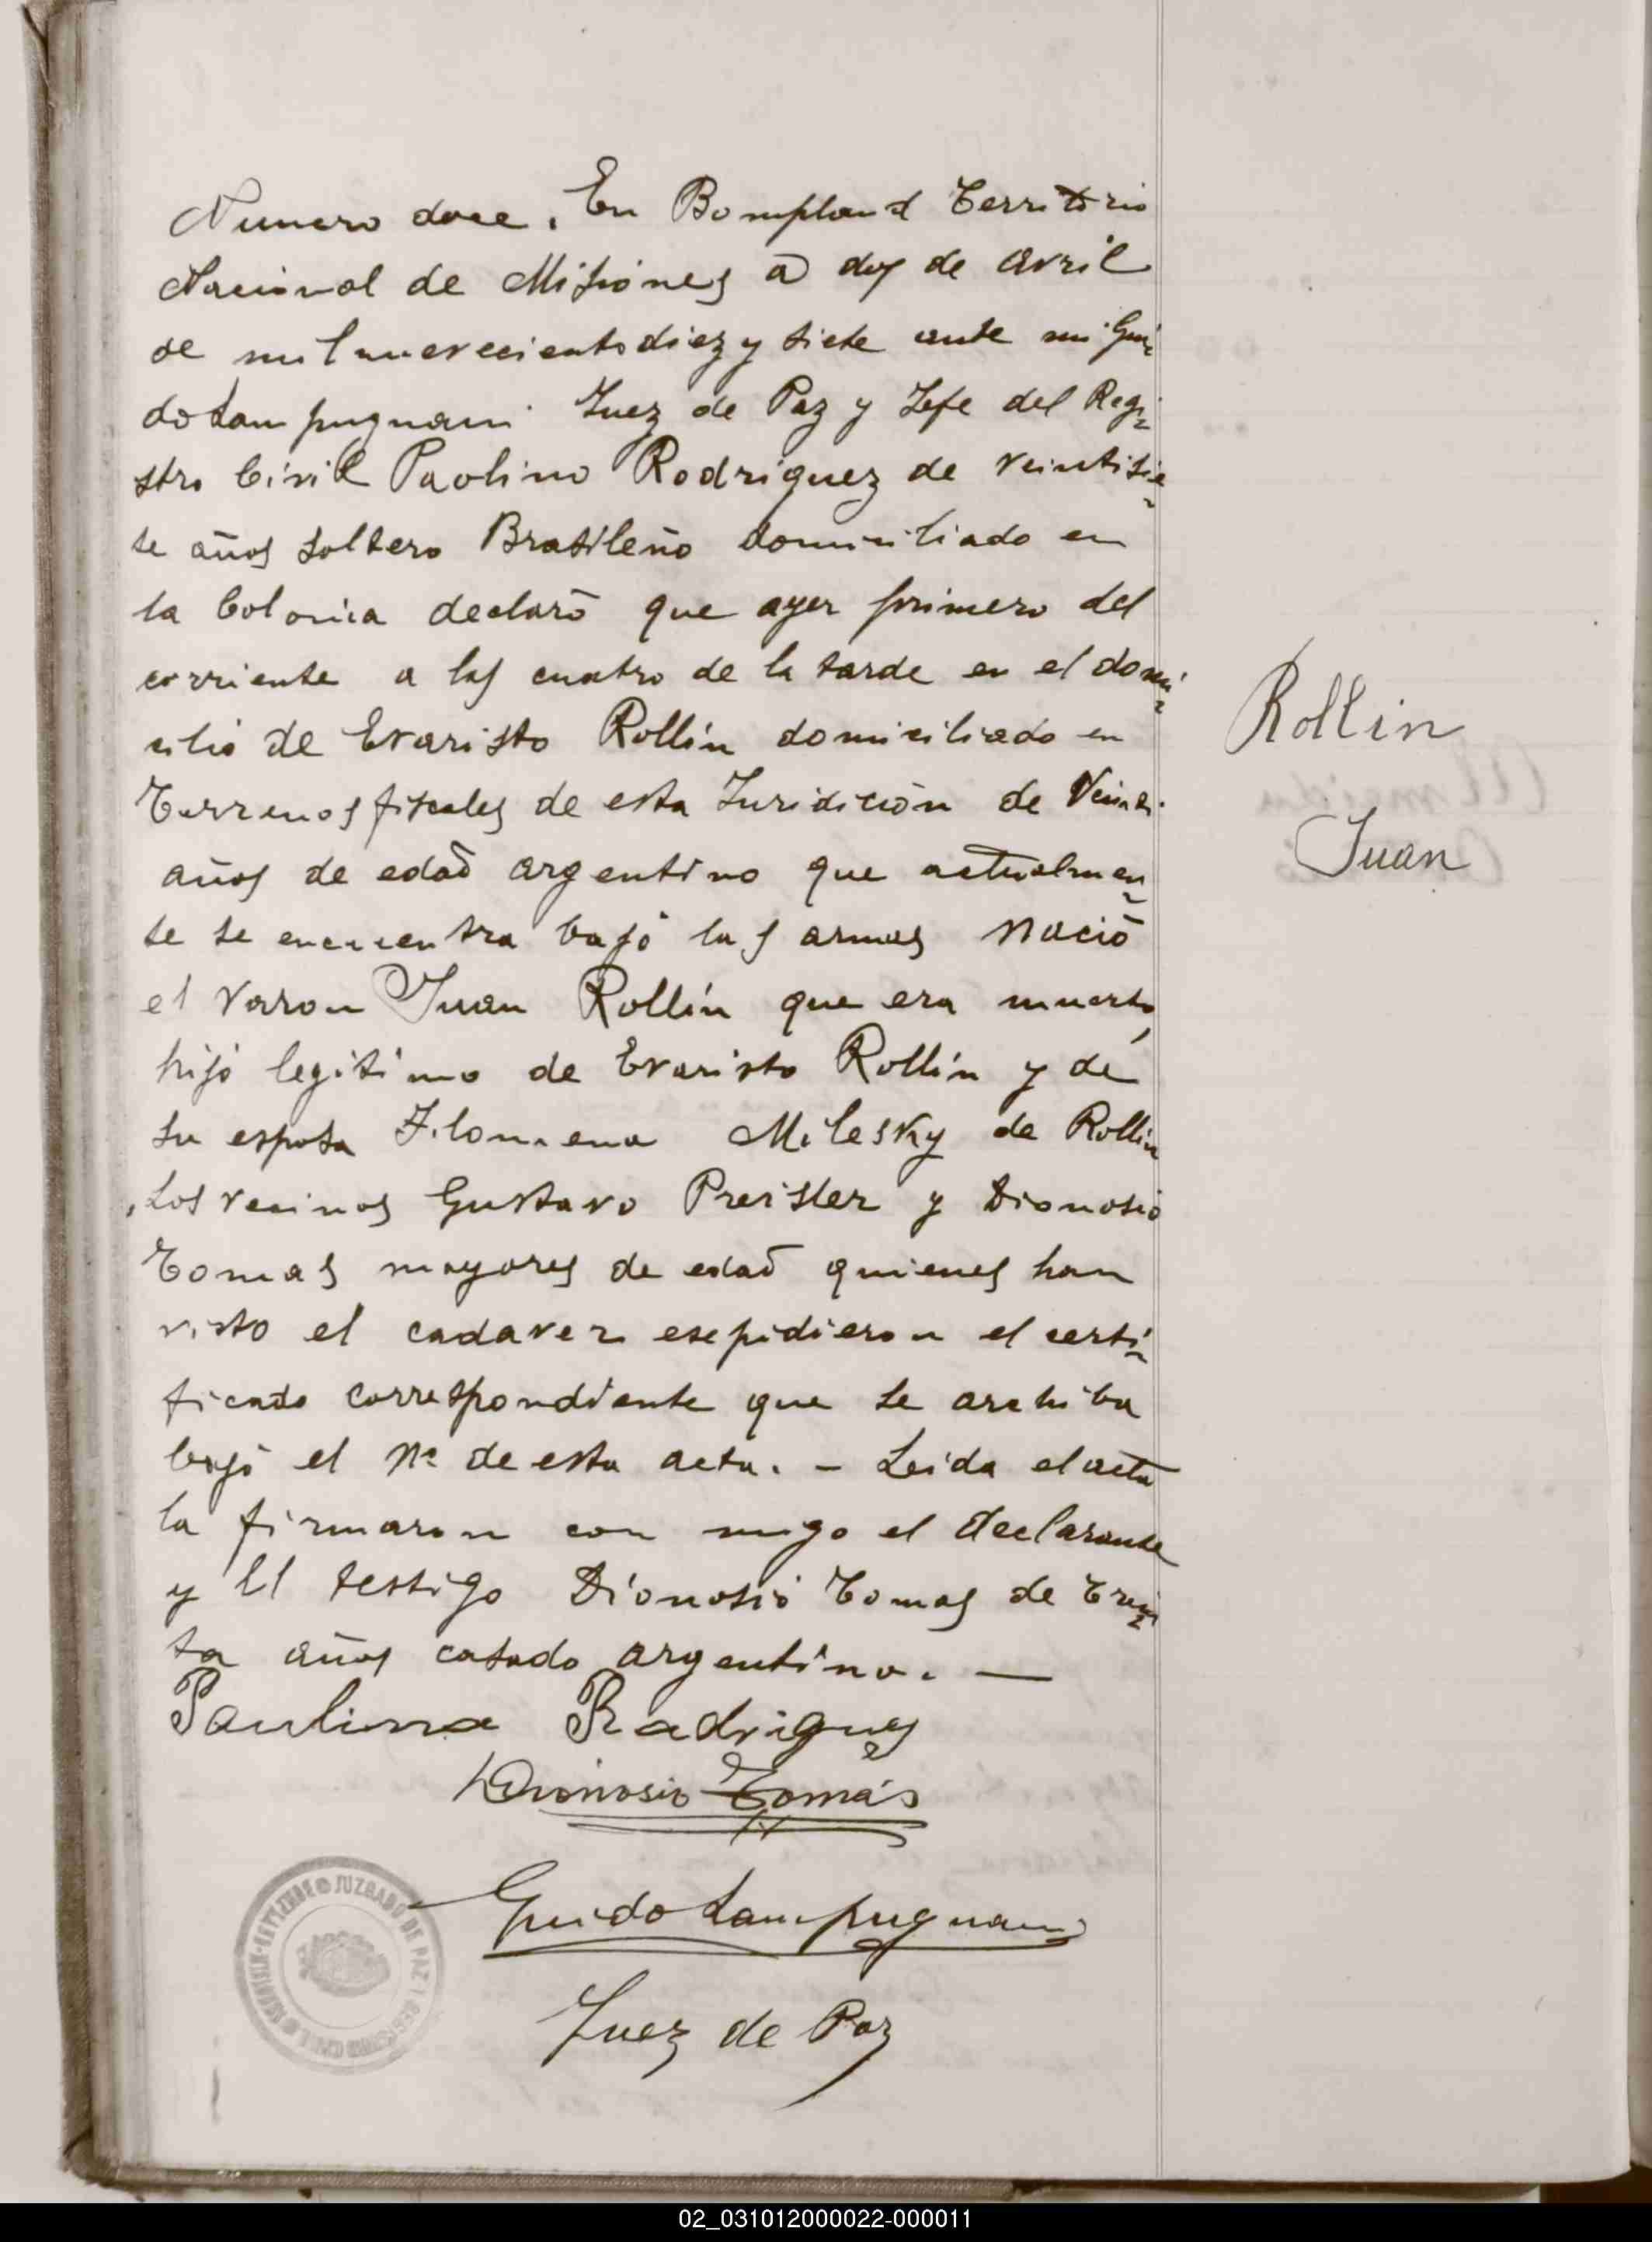 Numero doce. En Bompland Territorio
Nacional de Misiones a dos de Avril
de mil nuevecientodiez y siete ante mi Gui
do Lampugnani Juez de Paz y Jefe del Regi
stro Civil Paolino Rodriguez de veintisie
te años soltero Brasileño domiciliado en
la Colonia declaró que ayer primero del
corriente a las cuatro de la tarde en el domi
cilio de Evaristo Rollín domiciliado en
Terrenos fiscales de esta Juridición de Veinti
años de edad argentino que actualmen
te se encuentra bajo las armas nació
el varon Juan Rollín que era muerto,
hijo legitimo de Evaristo Rollín y de
su esposa Filomena Milesky de Rollín
Los vecinos Gustavo Preister y Dionosio
Tomas mayores de edad quienes han
visto el cadaver esepidieron el certi
ficado correspondiente que se archiba
bajo el Nº de esta acta. - Leida el acta
la firmaron con migo el declarante
y El testigo Dionosio Tomas de Trein
ta años casado argentino. —
Paulino Radrigues
Dionosio Tomás
Guido Lampugnani
Juez de Paz
Rollin
Juan
JUZGADO DE PAZ Y REGISTRO CIVIL
02_031012000022-000011